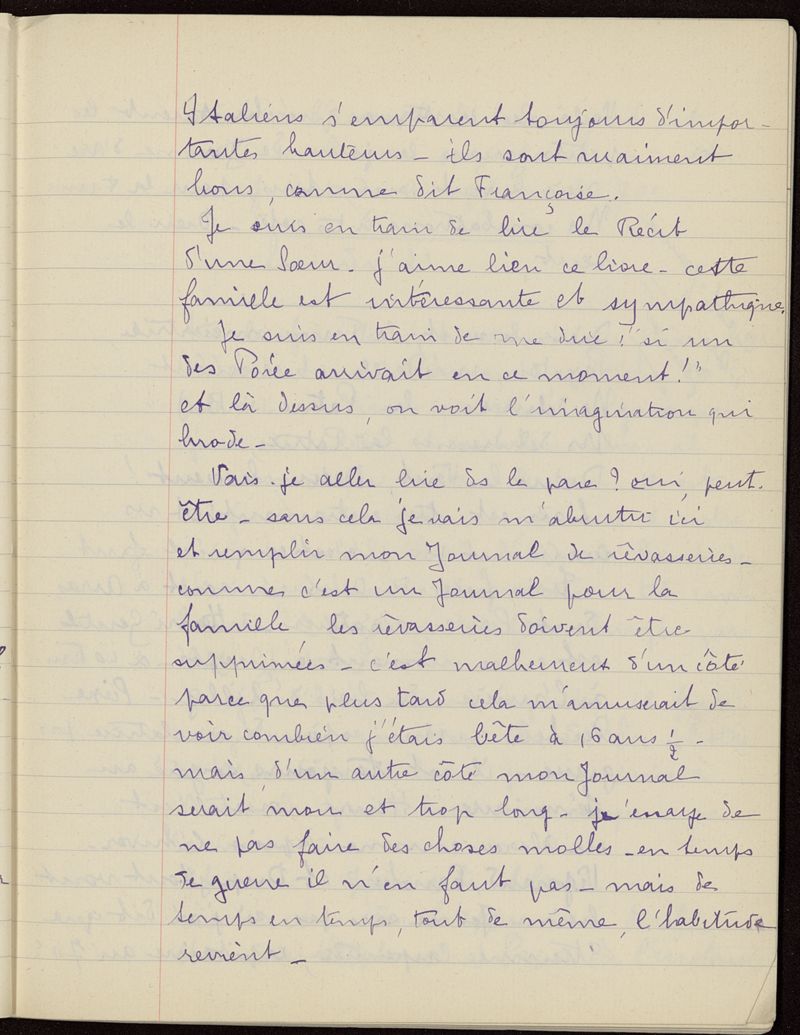 Italiens s'emparent toujours d'impor-
tantes hauteurs - ils sont vraiment
bons, comme dit Françoise.
Je suis en train de lire le Récit
d'une Sœur. j'aime bien ce livre - cette
famille est intéressante et sympathique.
Je suis en train de me dire : "si un
des Poirée arrivait en ce moment !"
et là dessus, on voit l'imagination qui
brode -
Vais-je aller lire ds le parc ? oui, peut-
être - sans cela je vais m'abrutir ici
et remplir mon Journal de rêvasseries -
comme c'est un Journal pour la
famille les rêvasseries doivent être
supprimées - c'est malheureux d'un côté
parce que plus tard cela m'amuserait de
voir combien j'étais bête à 16 ans 1/2 -
mais, d'un autre côté mon Journal
serait mou et trop long - j'essaye de
ne pas faire des choses molles - en temps
de guerre il n'en faut pas - mais de
temps en temps, tout de même, l'habitude
revient -